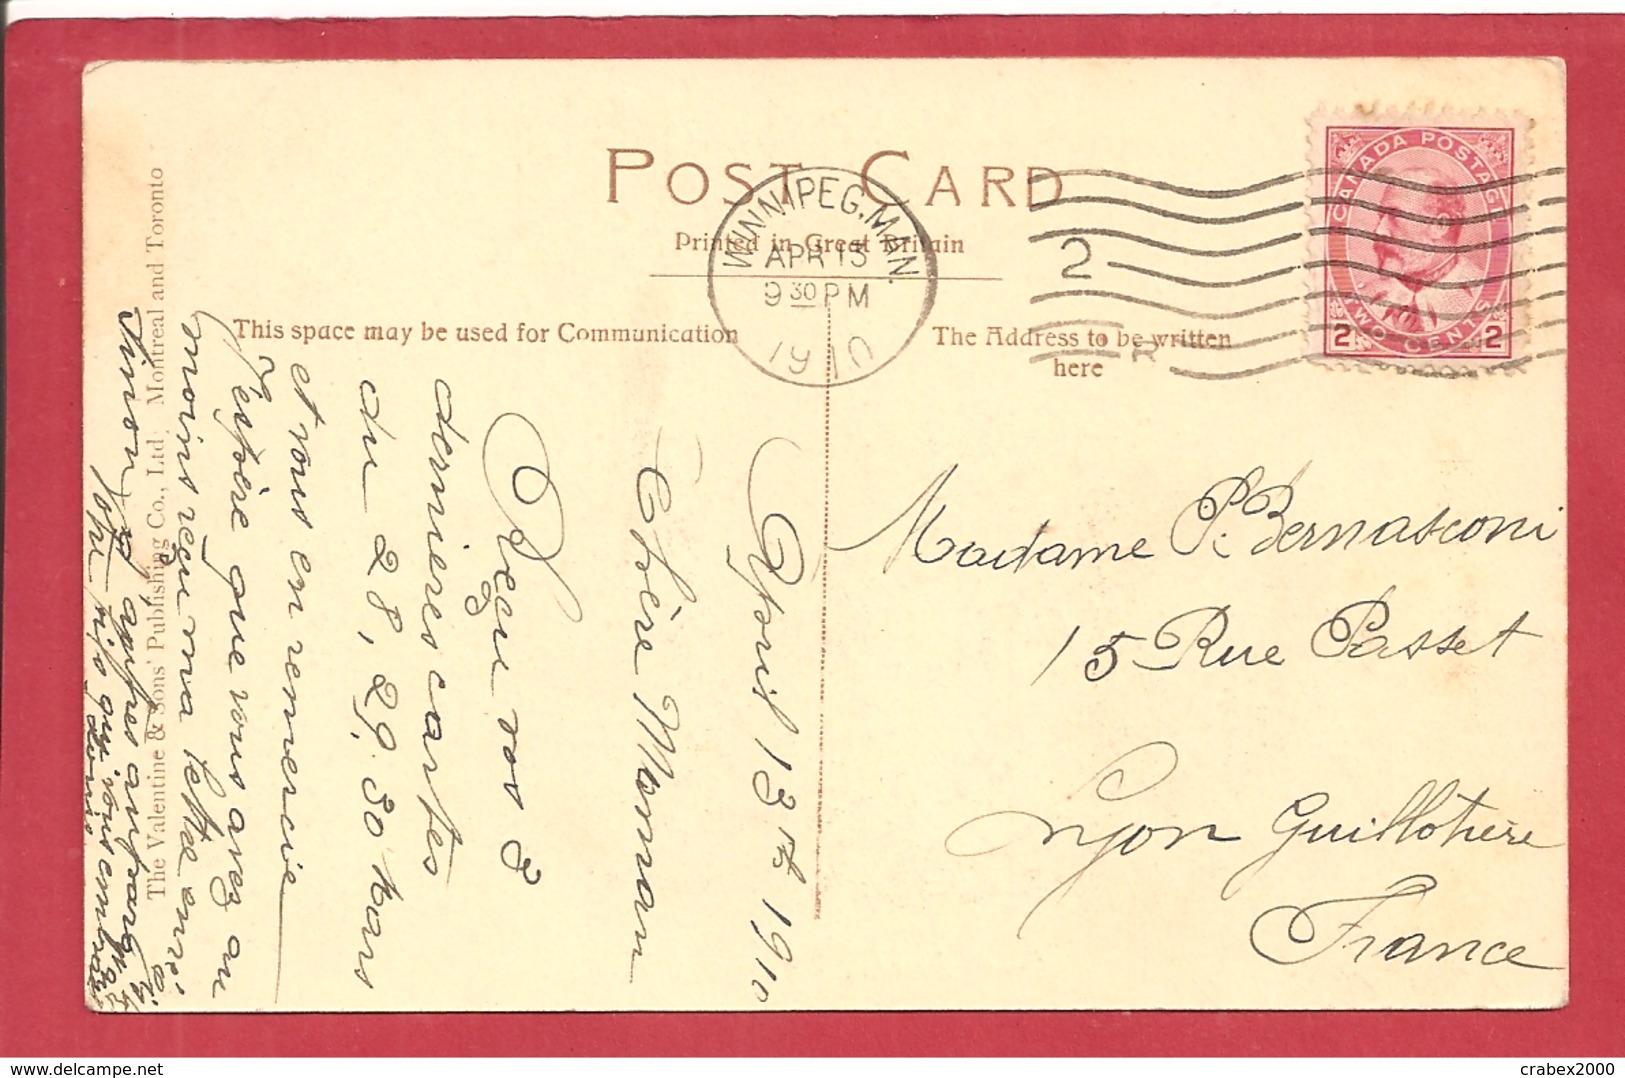 POST CARD
Printed in Great Britain
WINNIPEG, MAN.
APR 13
9 30 PM
1910
2
CANADA POSTAGE
TWO CENTS
2 2
This space may be used for Communication
The Address to be written
here
April 13th 1910
Chère Maman
Reçu vos 3
dernières cartes
du 28, 29, 30 Mars
et vous en remercie
J'espère que vous avez au
moins reçu ma lettre
Sinon
Votre fils qui vous embrasse
Louis
Madame P. Bernasconi
15 Rue Passet
Lyon Guillotière
France
The Valentine & Sons' Publishing Co., Ltd. Montreal and Toronto
delcampe.net
crabex2000